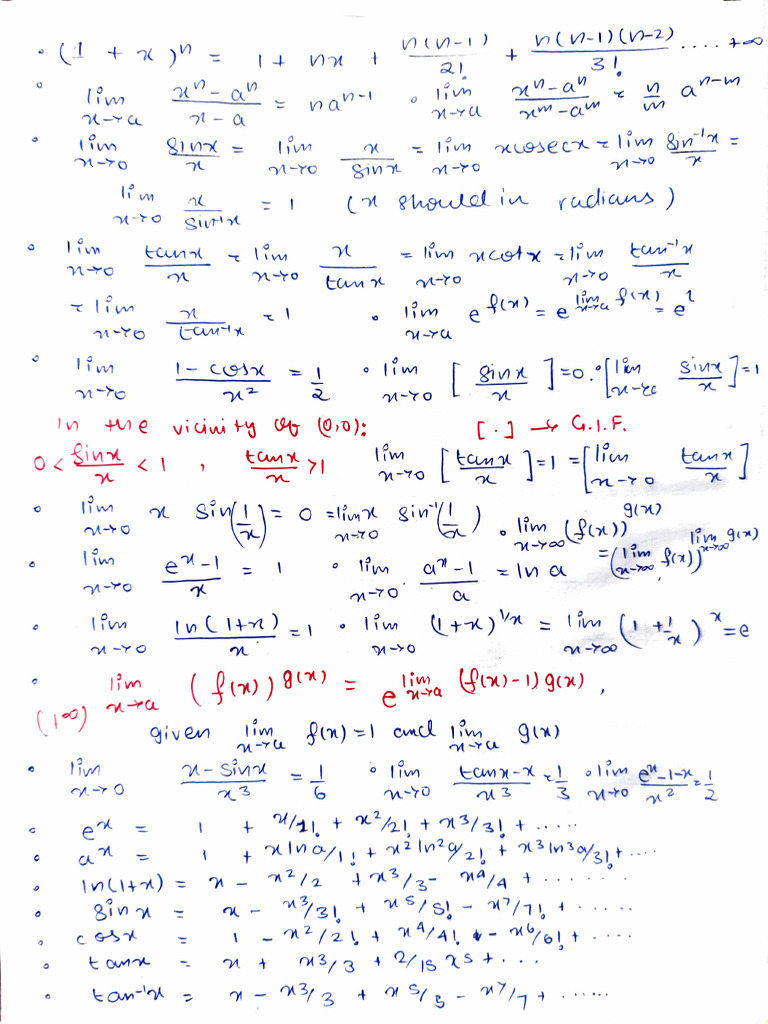 • (1 + x)^n = 1 + nx + n(n-1)/2! + n(n-1)(n-2)/3! .... +∞
• lim x→a (x^n - a^n)/(x - a) = na^(n-1) • lim x→a (x^n - a^n)/(x^m - a^m) = n/m a^(n-m)
• lim x→0 sinx/x = lim x→0 x/sinx = lim x→0 xcosecx = lim x→0 sin⁻¹x/x =
lim x→0 x/sin⁻¹x = 1 (x should in radians)
• lim x→0 tanx/x = lim x→0 x/tanx = lim x→0 xcotx = lim x→0 tan⁻¹x/x
= lim x→0 x/tan⁻¹x = 1 • lim x→a e^f(x) = e^(lim x→a f(x)) = e^l
• lim x→0 (1 - cosx)/x² = 1/2 • lim x→0 [sinx/x] = 0. • [lim x→0 sinx/x] = 1
In the vicinity of (0,0): [.] → G.I.F.
0 < sinx/x < 1 , tanx/x > 1 lim x→0 [tanx/x] = 1 = [lim x→0 tanx/x]
• lim x→0 x sin(1/x) = 0 = lim x→0 x sin⁻¹(1/x) • lim x→∞ (f(x))^g(x)
• lim x→0 (e^x - 1)/x = 1 • lim x→0 (a^x - 1)/a = ln a = (lim x→∞ f(x))^(lim x→∞ g(x))
• lim x→0 ln(1+x)/x = 1 • lim x→0 (1+x)^(1/x) = lim x→∞ (1 + 1/x)^x = e
• (1^∞) lim x→a (f(x))^g(x) = e^(lim x→a (f(x)-1)g(x)),
given lim x→a f(x) = 1 and lim x→a g(x)
• lim x→0 (x - sinx)/x³ = 1/6 • lim x→0 (tanx - x)/x³ = 1/3 • lim x→0 (e^x - 1 - x)/x² = 1/2
• e^x = 1 + x/1! + x²/2! + x³/3! + .....
• a^x = 1 + xlna/1! + x²ln²a/2! + x³ln³a/3! + ....
• ln(1+x) = x - x²/2 + x³/3 - x⁴/4 + .......
• sinx = x - x³/3! + x⁵/5! - x⁷/7! + ......
• cosx = 1 - x²/2! + x⁴/4! - x⁶/6! + ....
• tanx = x + x³/3 + 2/15 x5 + ...
• tan⁻¹x = x - x³/3 + x⁵/5 - x⁷/7 + ......